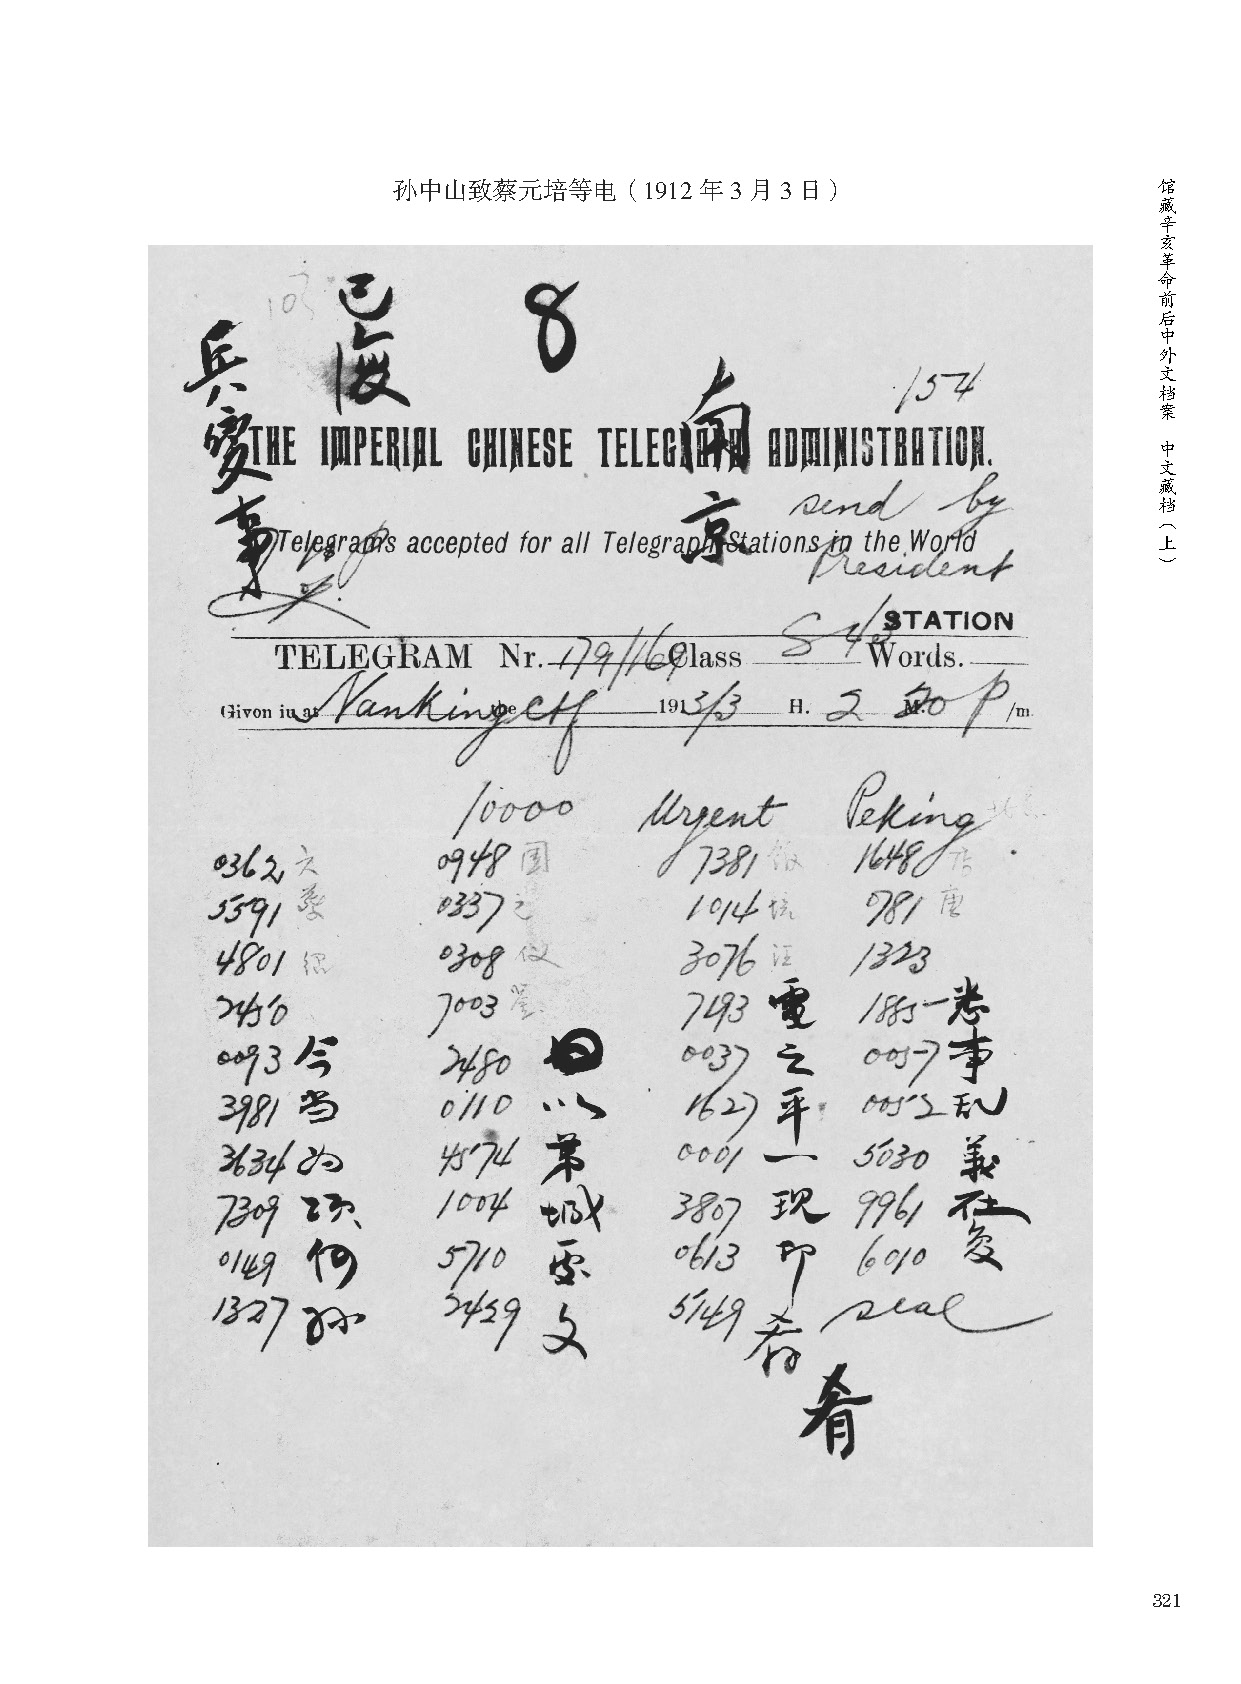 孙中山致蔡元培等电（1912年3月3日）
馆藏辛亥革命前后中外文档案 中文藏档（上）
8
兵变事
南京
154
THE IMPERIAL CHINESE TELEGRAPH ADMINISTRATION.
send by
Telegrams accepted for all Telegraph Stations in the World
President
STATION
TELEGRAM Nr. 179/169 Class S Words. 43
Givon iu at Nanking the 191 3/3 H. 2 M. 20 P /m.
10000 Urgent Peking
0362 0948 国 7381 饭 1648 店
5591 蔡 0337 1014 781 唐
4801 绍 0308 仪 3076 汪 1323
2450 7003 7193 電 1885 悉
0093 今 2480 0037 之 0057 事
3981 当 0110 以 1627 平 0052 乱
3634 为 4574 第 0001 一 5030 義
7309 项 1004 城 3807 现 9961 社
0149 何 5710 0613 印 6010
1327 孙 2429 文 5149 seal
肴
321